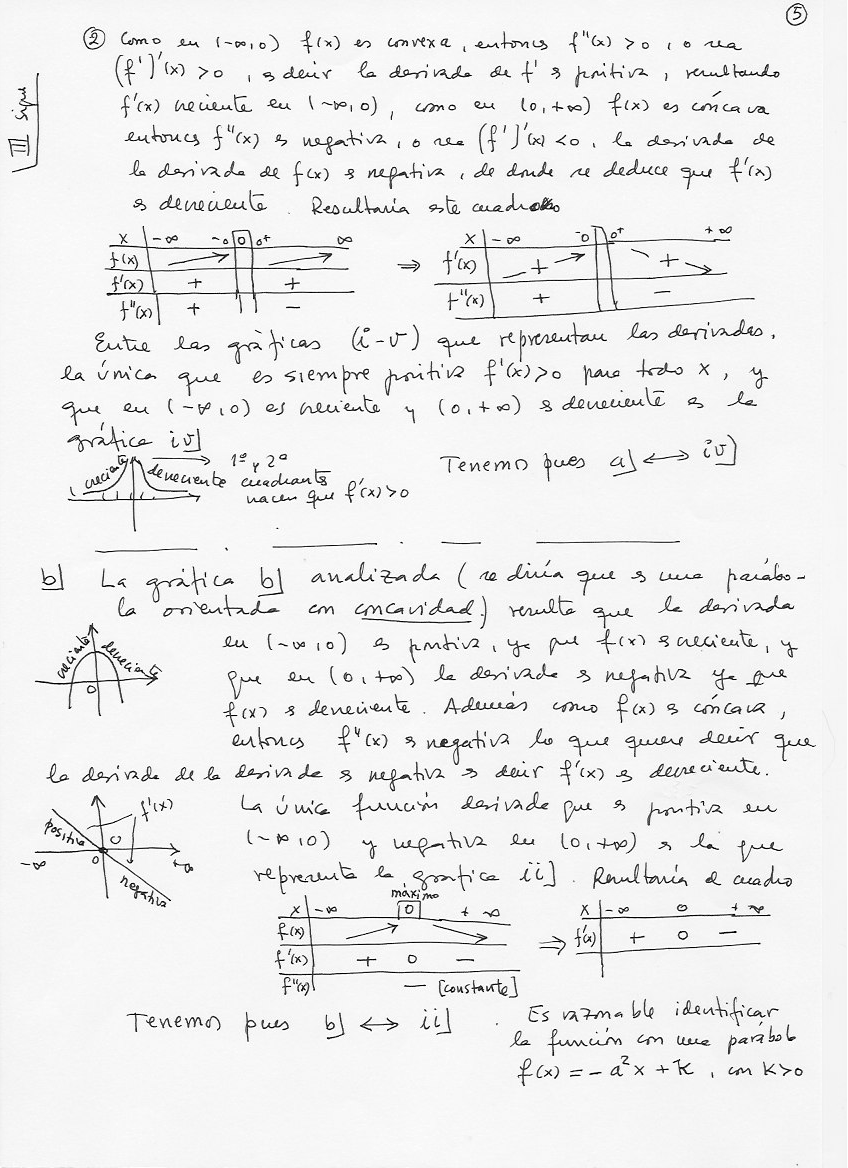 5
III sigue
② Como en (-∞,0) f(x) es convexa, entonces f''(x) > 0, o sea
(f')'(x) > 0, es decir la derivada de f' es positiva, resultando
f'(x) creciente en (-∞,0), como en (0,+∞) f(x) es cóncava
entonces f''(x) es negativa, o sea (f')'(x) < 0, la derivada de
la derivada de f(x) es negativa, de donde se deduce que f'(x)
es decreciente. Resultaría este cuadro
x | -∞ -0 | 0 | 0+ ∞
f(x)
f'(x) + +
f''(x) + -
⇒
x | -∞ -0 0+ +∞
f'(x) + +
f''(x) + -
Entre las gráficas (i-v) que representan las derivadas,
la única que es siempre positiva f'(x)>0 para todo x, y
que en (-∞,0) es creciente y (0,+∞) es decreciente es la
gráfica iv]
creciente decreciente
1º y 2º
cuadrants
hacen que f'(x)>0
Tenemos pues a] ↔ iv]
b] La gráfica b] analizada (se diría que es una parábo-
la orientada con concavidad) resulta que la derivada
en (-∞,0) es positiva, ya que f(x) es creciente, y
que en (0,+∞) la derivada es negativa ya que
f(x) es decreciente. Además como f(x) es cóncava,
entonces f''(x) es negativa lo que quiere decir que
la derivada de la derivada es negativa es decir f'(x) es decreciente.
creciente decreciente
0
La única función derivada que es positiva en
(-∞,0) y negativa en (0,+∞) es la que
representa la grafica ii]. Resultaría el cuadro
f'(x)
positiva 0
-∞ 0 +∞
negativa
máximo
x | -∞ 0 + ∞
f(x)
f'(x) + 0 -
f''(x) - [constante]
⇒
x | -∞ 0 + ∞
f'(x) + 0 -
Tenemos pues b] ↔ ii]
. Es razonable identificar
la función con una parábola
f(x) = -a²x + k, con k>0